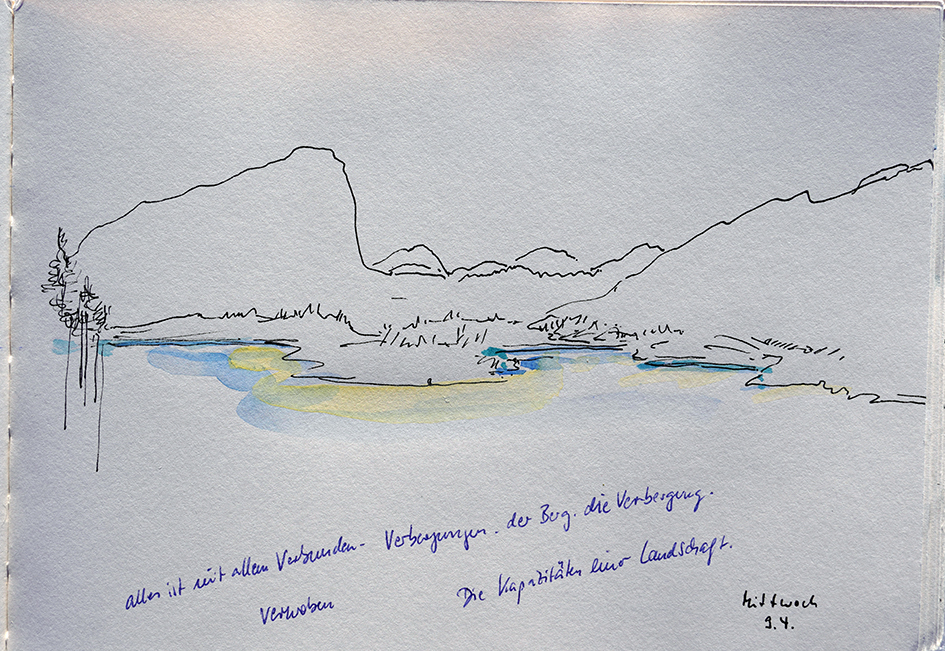 alles ist mit allem Verbunden- Verbergungen. der Berg. die Verbergung.
verwoben
Die Kapazitäten einer Landschaft.
Mittwoch
9.4.